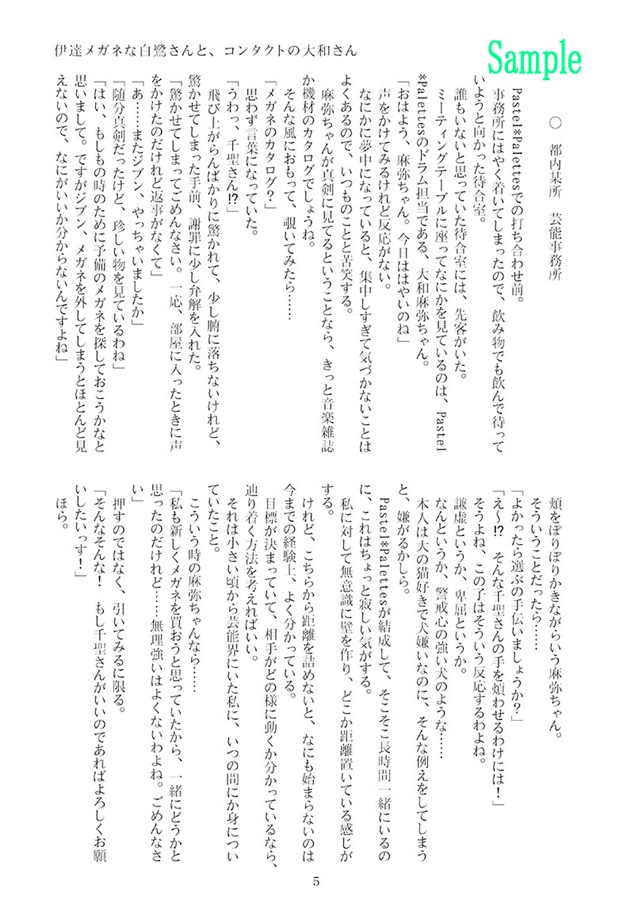 伊達メガネな白鷺さんと、コンタクトの大和さん
Sample
〇 都内某所 芸能事務所
Pastel*Palettesでの打ち合わせ前。
事務所にはやく着いてしまったので、飲み物でも飲んで待って
いようと向かった待合室。
誰もいないと思っていた待合室には、先客がいた。
ミーティングテーブルに座ってなにかを見ているのは、Pastel
*Palettesのドラム担当である、大和麻弥ちゃん。
「おはよう、麻弥ちゃん。今日ははやいのね」
声をかけてみるけれど反応がない。
なにかに夢中になっていると、集中しすぎて気づかないことは
よくあるので、いつものことと苦笑する。
麻弥ちゃんが真剣に見てるということなら、きっと音楽雑誌
か機材のカタログでしょうね。
そんな風におもって、覗いてみたら……
「メガネのカタログ？」
思わず言葉になっていた。
「うわっ、千聖さん!?」
飛び上がらんばかりに驚かれて、少し腑に落ちないけれど、
驚かせてしまった手前、謝罪に少し弁解を入れた。
「驚かせてしまってごめんなさい。一応、部屋に入ったときに声
をかけたのだけれど返事がなくて」
「あ……またジブン、やっちゃいましたか」
「随分真剣だったけど、珍しい物を見ているわね」
「はい、もしもの時のために予備のメガネを探しておこうかなと
思いまして。ですがジブン、メガネを外してしまうとほとんど見
えないので、なにがいいか分からないんですよね」
頬をぽりぽりかきながらいう麻弥ちゃん。
そういうことだったら……
「よかったら選ぶの手伝いましょうか？」
「え～!? そんな千聖さんの手を煩わせるわけには！」
そうよね、この子はそういう反応するわよね。
謙虚というか、卑屈というか。
なんというか、警戒心の強い犬のような……
本人は大の猫好きで犬嫌いなのに、そんな例えをしてしまう
と、嫌がるかしら。
Pastel*Palettesが結成して、そこそこ長時間一緒にいるの
に、これはちょっと寂しい気がする。
私に対して無意識に壁を作り、どこか距離置いている感じが
する。
けれど、こちらから距離を詰めないと、なにも始まらないのは
今までの経験上、よく分かっている。
目標が決まっていて、相手がどの様に動くか分かっているなら、
辿り着く方法を考えればいい。
それは小さい頃から芸能界にいた私に、いつの間にか身につい
ていたこと。
こういう時の麻弥ちゃんなら……
「私も新しくメガネを買おうと思っていたから、一緒にどうかと
思ったのだけれど……無理強いはよくないわよね。ごめんなさ
い」
押すのではなく、引いてみるに限る。
「そんなそんな！ もし千聖さんがいいのであればよろしくお願
いしたいっす！」
ほら。
5